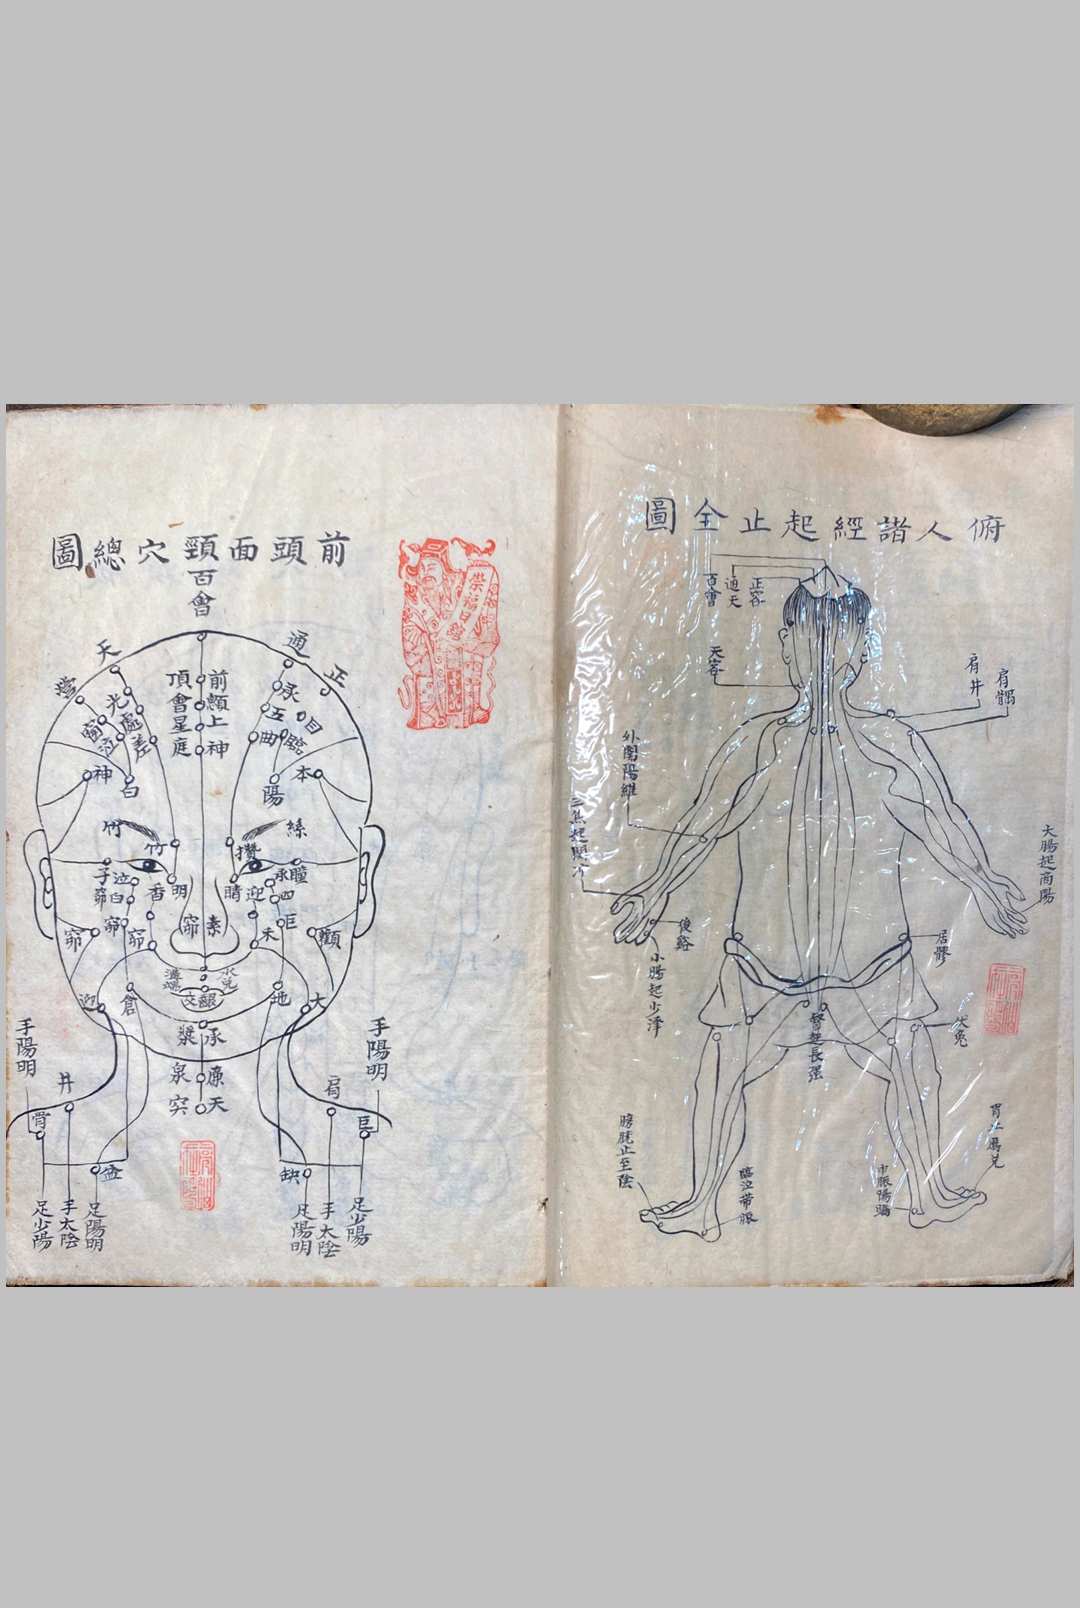 俯人諸經起止全圖
正容
通天
百會
天容
肩井
肩髃
外関陽維
三焦起関冲
大腸起商陽
後谿
小腸起少澤
居髎
督起長强
伏兔
膀胱止至陰
臨泣帯脈
胃止厲兌
前頭面頸穴總圖
百會
通
正
天
營
承
光
五
處
目
窗
前頂
顖會
上星
神庭
曲
差
臨
泣
陽
白
本
神
絲
竹
攢
竹
瞳
子
窌
承
泣
四
白
睛
明
迎
香
素
窌
巨
窌
禾
窌
顴
窌
水溝
兌端
齦交
地
倉
大
迎
承
漿
廉
泉
天
突
手陽明
手陽明
肩
井
巨
骨
缺
盆
足少陽
手太陰
足陽明
足陽明
手太陰
足少陽